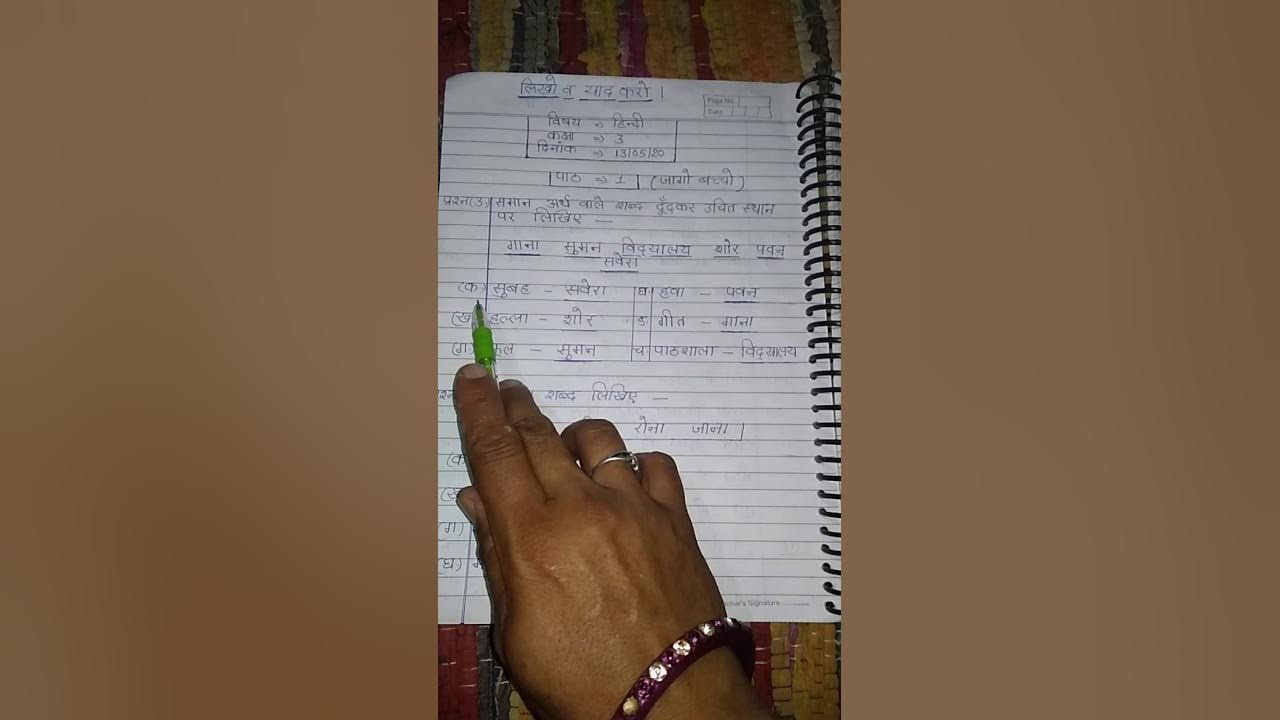 लिखो व याद करो ।
Page No.
Date
विषय => हिन्दी
कक्षा => 3
दिनांक => 13/05/20
पाठ => 1 (जागो बच्चो)
प्रश्न(3) समान अर्थ वाले शब्द ढूँढकर उचित स्थान
पर लिखिए —
गाना सुमन विद्यालय शोर पवन
सवेरा
(क) सुबह - सवेरा घ) हवा - पवन
(ख) हल्ला - शोर ङ) गीत - गाना
(ग) फूल - सुमन च) पाठशाला - विद्यालय
शब्द लिखिए —
रोना जाना
(क
(ख
(ग)
(घ)
Signature